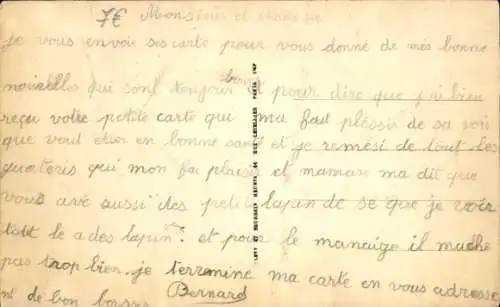 7€ Monsieur et
je vous envoie ses carte pour vous donné de mes bonne
nouvelles qui sont toujour bonne et pour dire que j'ai bien
reçu votre petite carte qui ma fait plessir de sa voir
que vout etier en bonne santé et je remesi de tout les
qui mon fai plaisir et maman ma dit que
vous avé aussi des petit lapun de se que je voir
tout le a des lapun. et pour le manaige il mache
pas trop bien. je termine ma carte en vous adresse
nt de bon
Bernard